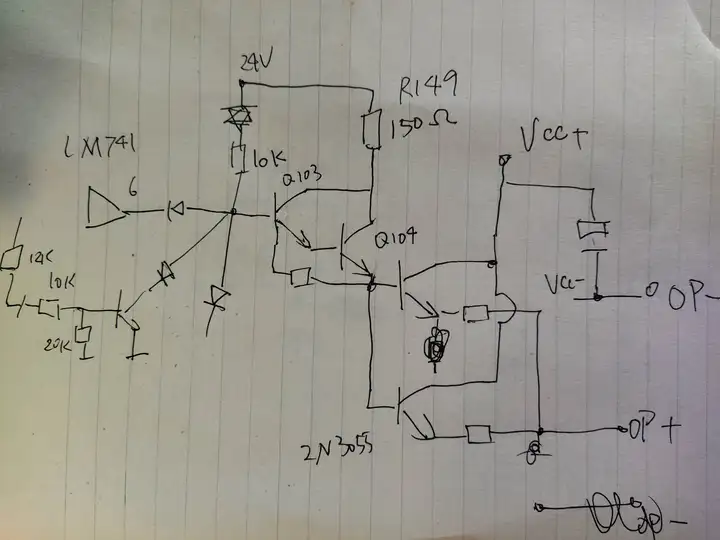 24V
R149
150Ω
LM741
6
10K
Q103
VCC+
Q104
12K
10K
20K
VCC-
OP-
2N3055
OP+